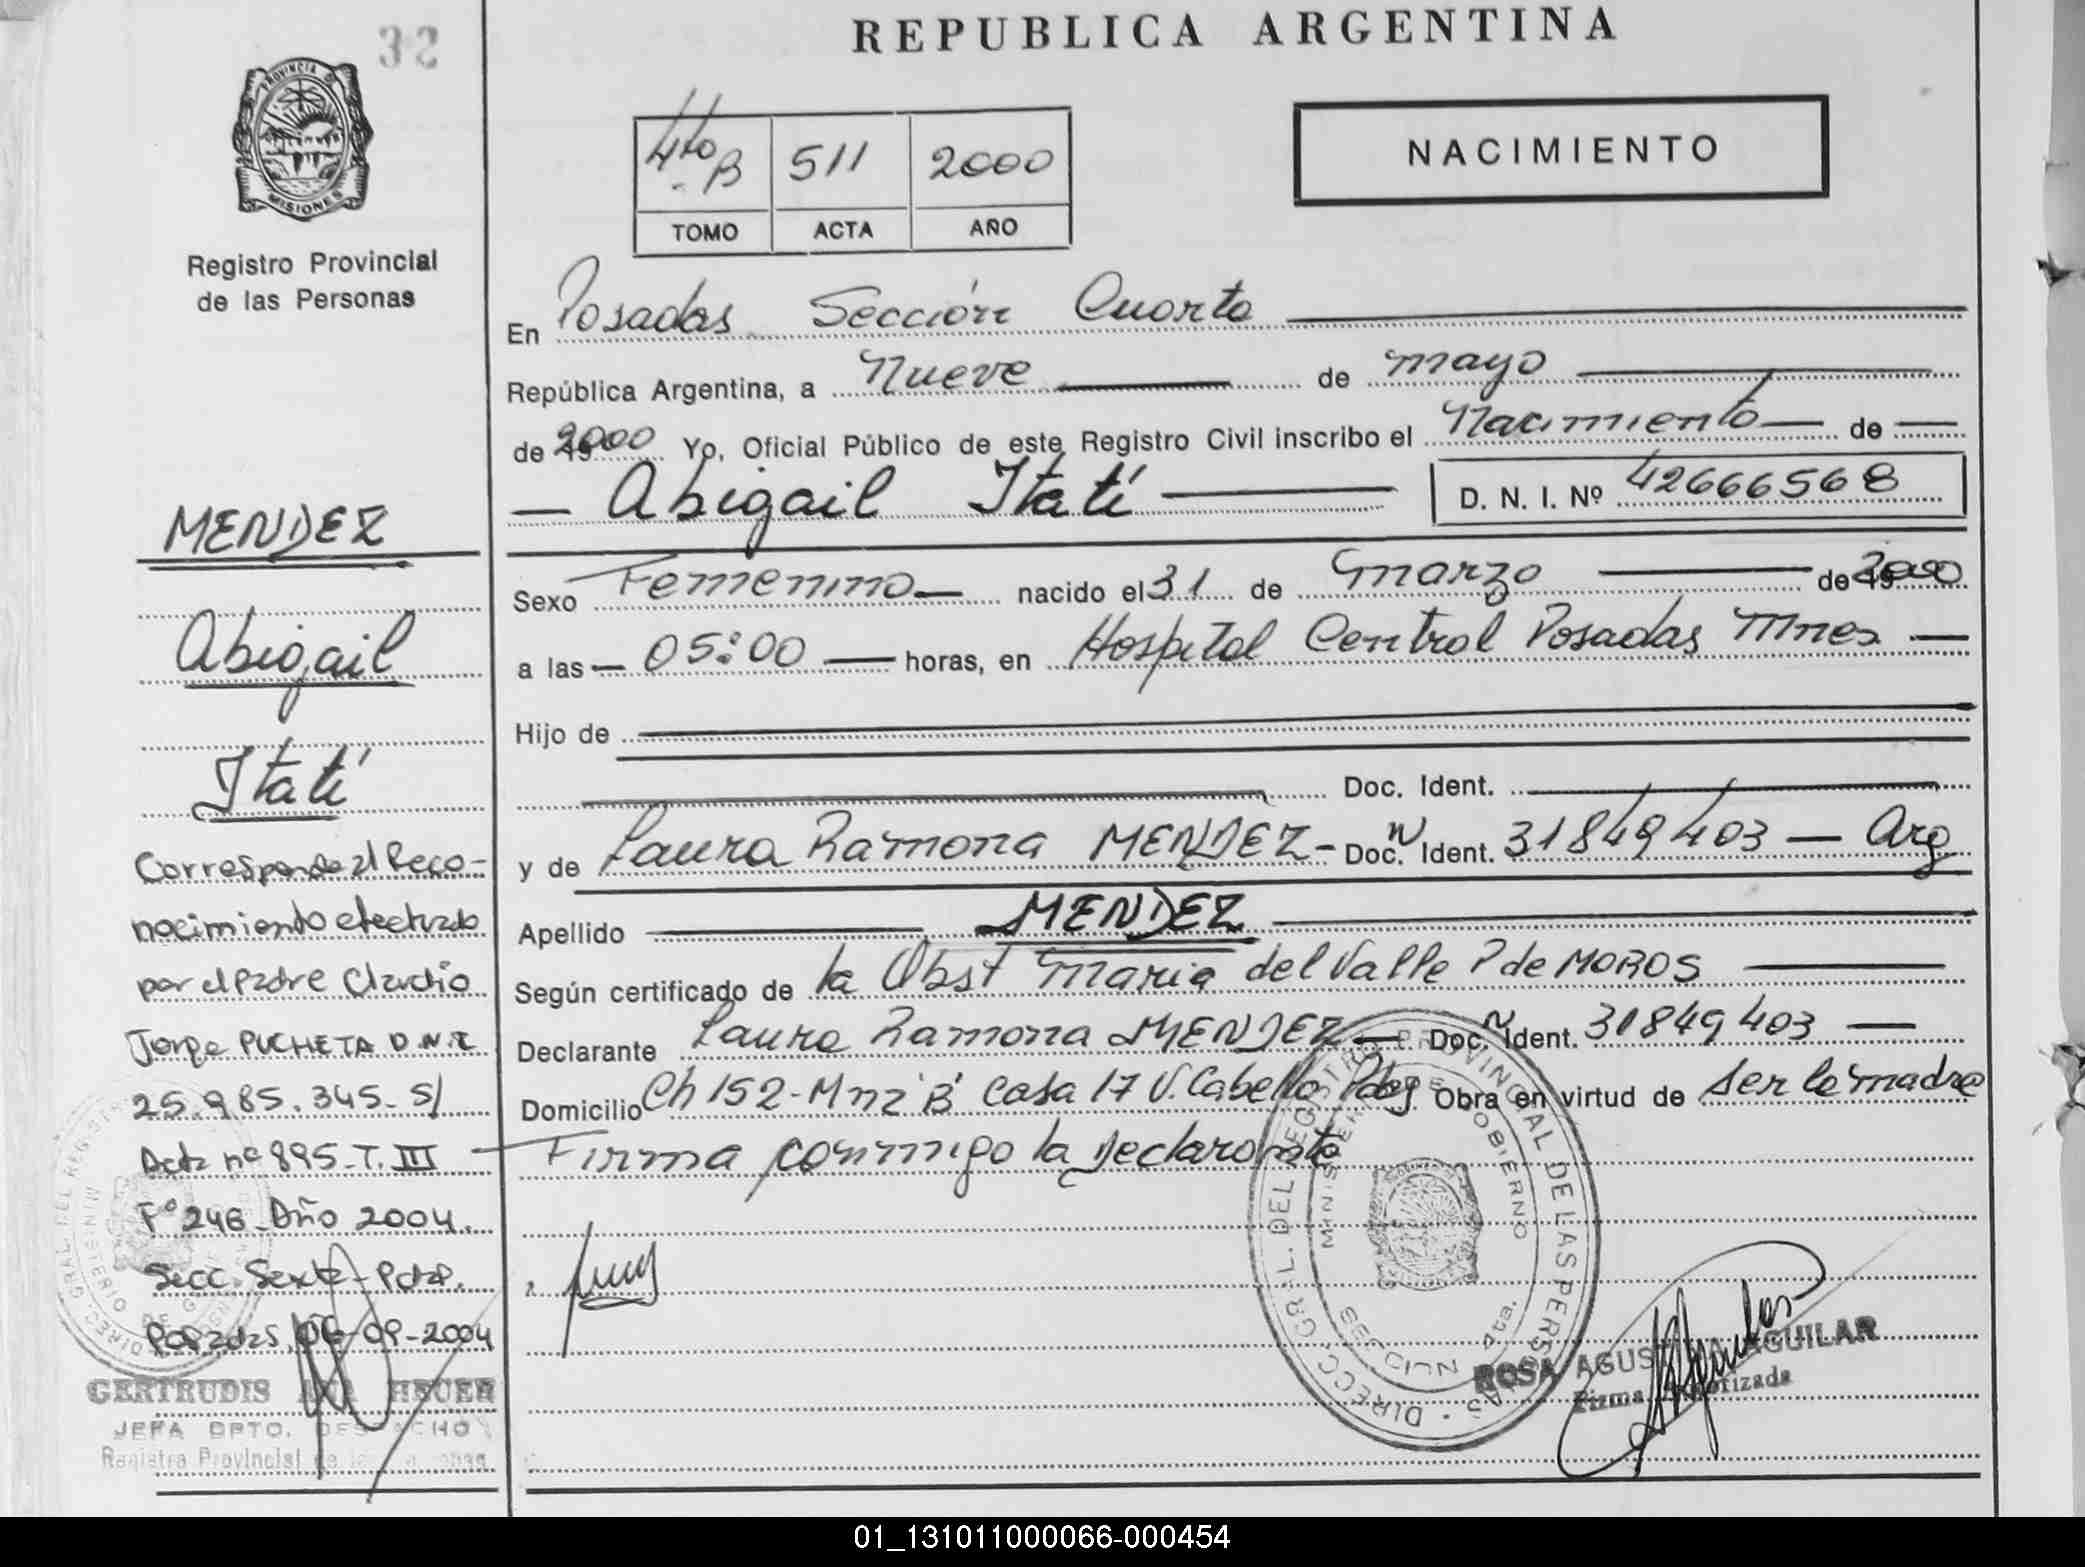 32
REPUBLICA ARGENTINA
PROVINCIA D
MISIONES
Registro Provincial
de las Personas
4to B 511 2000
TOMO ACTA AÑO
NACIMIENTO
En Posadas Sección Cuarta
República Argentina, a Nueve de mayo
de 2000 Yo, Oficial Público de este Registro Civil inscribo el Nacimiento de
Abigail Itatí D. N. I. Nº 42666568
Sexo Femenino nacido el 31 de marzo de 2000
a las 05:00 horas, en Hospital Central Posadas Mnes
Hijo de
Doc. Ident.
y de Laura Ramona MENDEZ - Doc. N Ident. 31849403 Arg
Apellido MENDEZ
Según certificado de la Obst Maria del Valle P de MOROS
Declarante Laura Ramona MENDEZ Doc. N Ident. 31849403
Domicilio Ch 152 - Mnz "B" Casa 17 V. Cabello Pdas Obra en virtud de ser la madre
Firma conmigo la declarante
MENDEZ
Abigail
Itatí
Corresponde al Reco-
nocimiento efectuado
por el Padre Claudio
Jorge PUCHETA D.N.I.
25.985.345- S/
Acta nº 895-T. III
Fº 246-Año 2004.
Secc. Sexta - Pdas.
Posadas, 06-09-2004
GERTRUDIS ANA HEUER
JEFA DPTO. DESPACHO
Registro Provincial de las
DIRECC. GRAL. DEL REGISTRO PROVINCIAL DE LAS PERSONAS
MINISTERIO DE GOBIERNO
ROSA AGUSTINA AGUILAR
Firma Autorizada
01_131011000066-000454